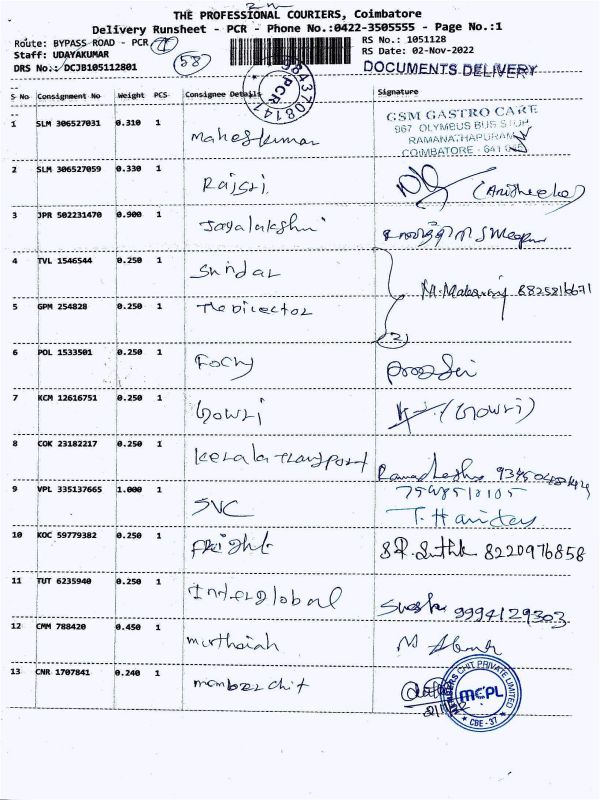 THE PROFESSIONAL COURIERS, Coimbatore
Delivery Runsheet - PCR - Phone No.:0422-3505555 - Page No.:1
Route: BYPASS ROAD - PCR
RS No.: 1051128
Staff: UDAYAKUMAR
RS Date: 02-Nov-2022
DRS No.: DCJB105112801
58
DOCUMENTS DELIVERY
9843708141
PCR
S No Consignment No Weight PCS Consignee Details Signature
1 SLM 306527031 0.310 1 Maheskumar
GSM GASTRO CARE
967 OLYMBUS BUS STOP
RAMANATHAPURAM
COIMBATORE - 641 045
2 SLM 306527059 0.330 1 Rajsri
3 JPR 502231470 0.900 1 Jayalakshmi
4 TVL 1546544 0.250 1 Sundar
5 GPM 254828 0.250 1 The Director
2
6 POL 1533501 0.250 1
7 KCM 12616751 0.250 1 Gowri (Gowri)
8 COK 23182217 0.250 1 Kerala Transport
9 VPL 335137665 1.000 1 SVC
10 KOC 59779382 0.250 1 Fright 8220976858
11 TUT 6235940 0.250 1 Interglobal 9994129303
12 CMM 788420 0.450 1 Muthaiah
13 CNR 1707841 0.240 1 member chit
MEMBERS CHIT PRIVATE LIMITED
MCPL
CBE - 37